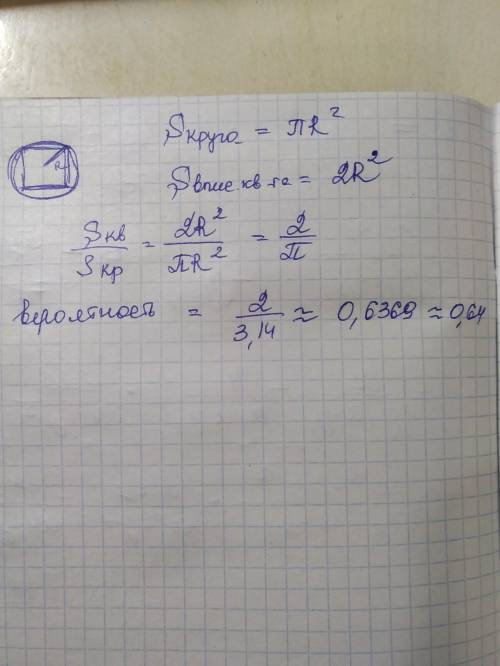 Sкруга = πR²
Sвпис.кв-та = 2R²
Sкв/Sкр = 2R²/πR² = 2/π
вероятность = 2/3,14 ≈ 0,6369 ≈ 0,64
R